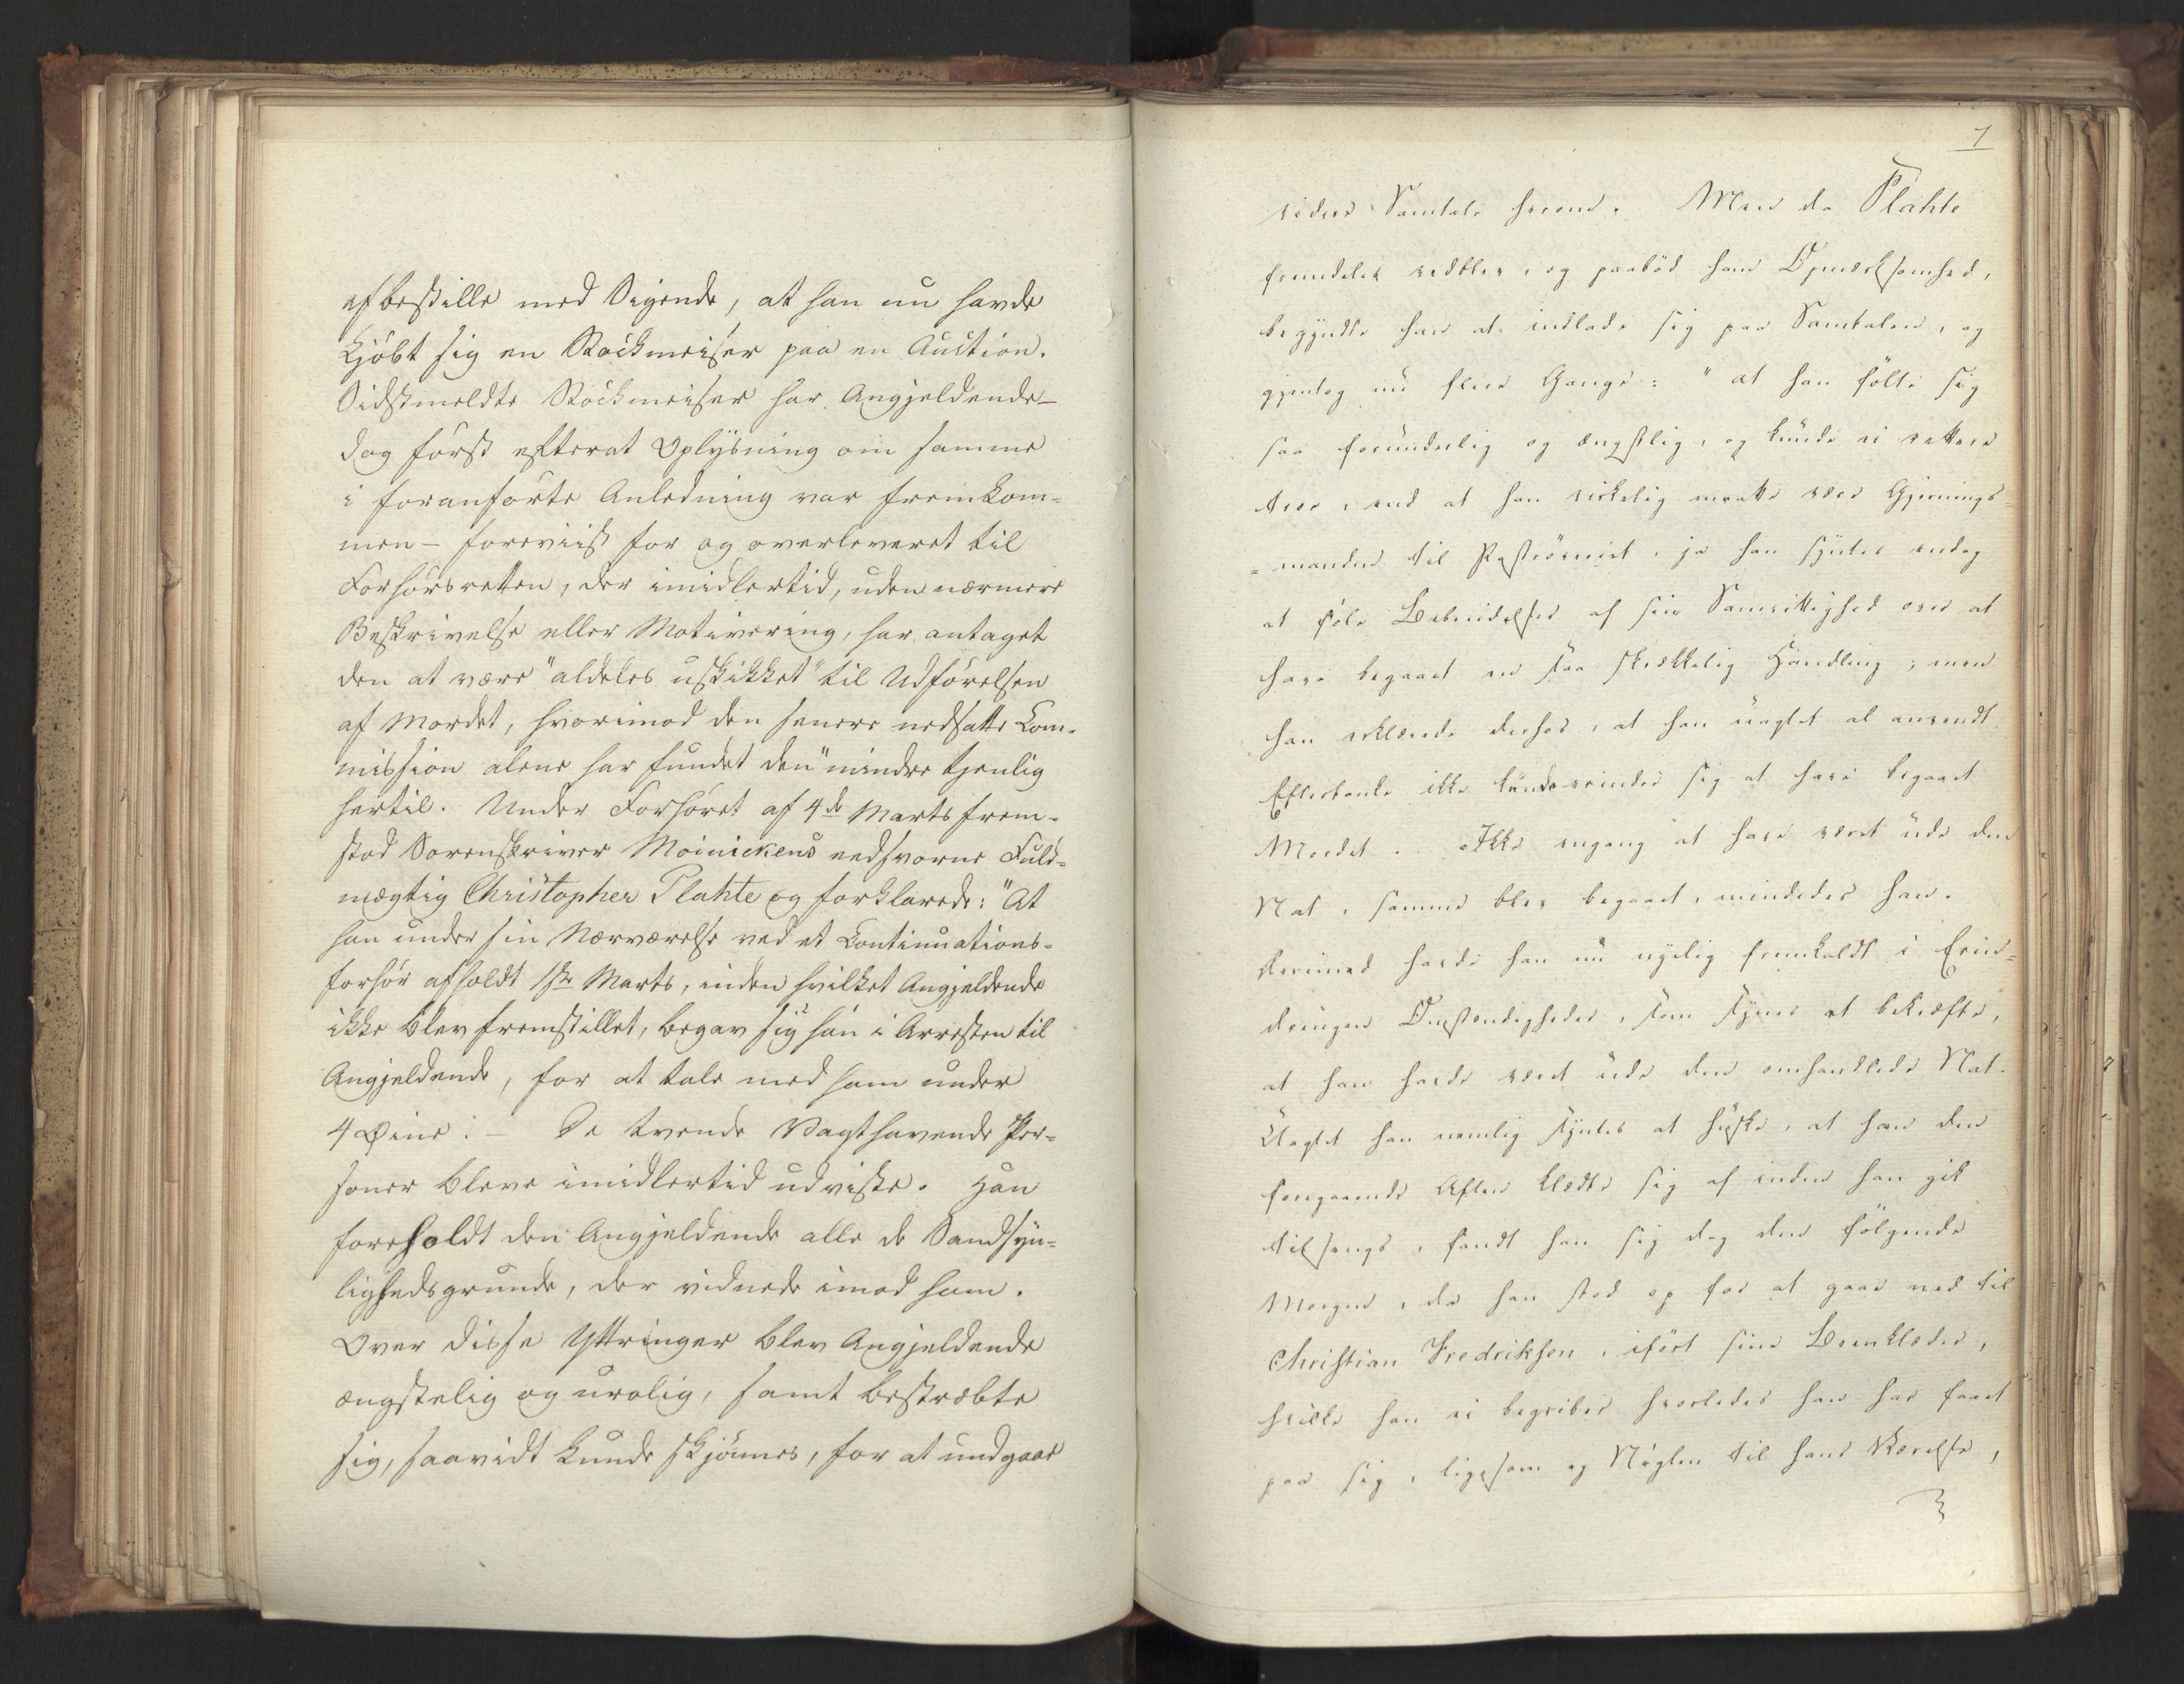 afbestille med Sigende, at han nu havde
kjöbt sig en Stockmeiser paa en Auction.
Sidstmeldte Stockmeiser har Angjeldende –
dog först efterat Oplysning om samme
i foranförte Anledning var fremkom-
men – foreviist for og overleveret til
Forhörsretten, der imidlertid, uden nærmere
Beskrivelse eller Motivering, har antaget
den at være "aldeles uskikket" til Udförelsen
af Mordet, hvorimod den senere nedsatte Com-
mission alene har fundet den "mindre tjenlig
hertil. Under Forhöret af 4de Marts frem-
stod Sorenskriver Moinickens edsvorne Fuld-
mægtig Christopher Plahte og forklarede: "At
han under sin Nærværelse ved et Continuations-
forhör afholdt 1ste Marts, inden hvilket Angjeldende
ikke blev fremstillet, begav sig han i Arresten til
Angjeldende, for at tale med ham under
4 Øine. – De tvende Vagthavende Per-
soner bleve imidlertid udviste. Han
foreholdt den Angjeldende alle de Sandsyn-
lighedsgrunde, der vidnede imod ham.
Over disse Yttringer blev Angjeldende
ængstelig og urolig, samt bestræbte
sig, saavidt kunde skjönnes, for at undgaae
7
videre Samtale herom. Men da Plahte
fremdeles vedblev, og paabød ham Opmærksomhed,
begyndte han at indlade sig paa Samtalen, og
gjentog nu flere Gange: "at han fölte sig
saa forunderlig og ængstlig, og kunde ei rettere
troe, end at han virkelig maatte være Gjernings-
= manden til Poströveriet, ja han syntes endog
at föle Bebreidelser af sin Samvittighed over at
have begaaet en saa skrækkelig Handling; men
han erklærede derhos, at han uagtet al anvendt
Eftertanke ikke kunde erindre sig at have begaaet
Mordet. Ikke engang at have været ude den
Nat, samme blev begaaet, mindedes han.
Derimod havde han nu nyelig fremkaldt i Erin-
dringen Omstændigheder, som synes at bekræfte,
at han havde været ude den omhandlede Nat.
Uagtet han nemlig syntes at huske, at han den
foregaaende Aften klædte sig af inden han gik
tilsengs, fandt han sig dog den fölgende
Morgen, da han stod op for at gaae ned til
Christian Fredriksen, iført sine Beenklæder,
hvilke han ei begriber hvorledes han har faaet
paa sig, ligesom og Nöglen til hans Værelse,